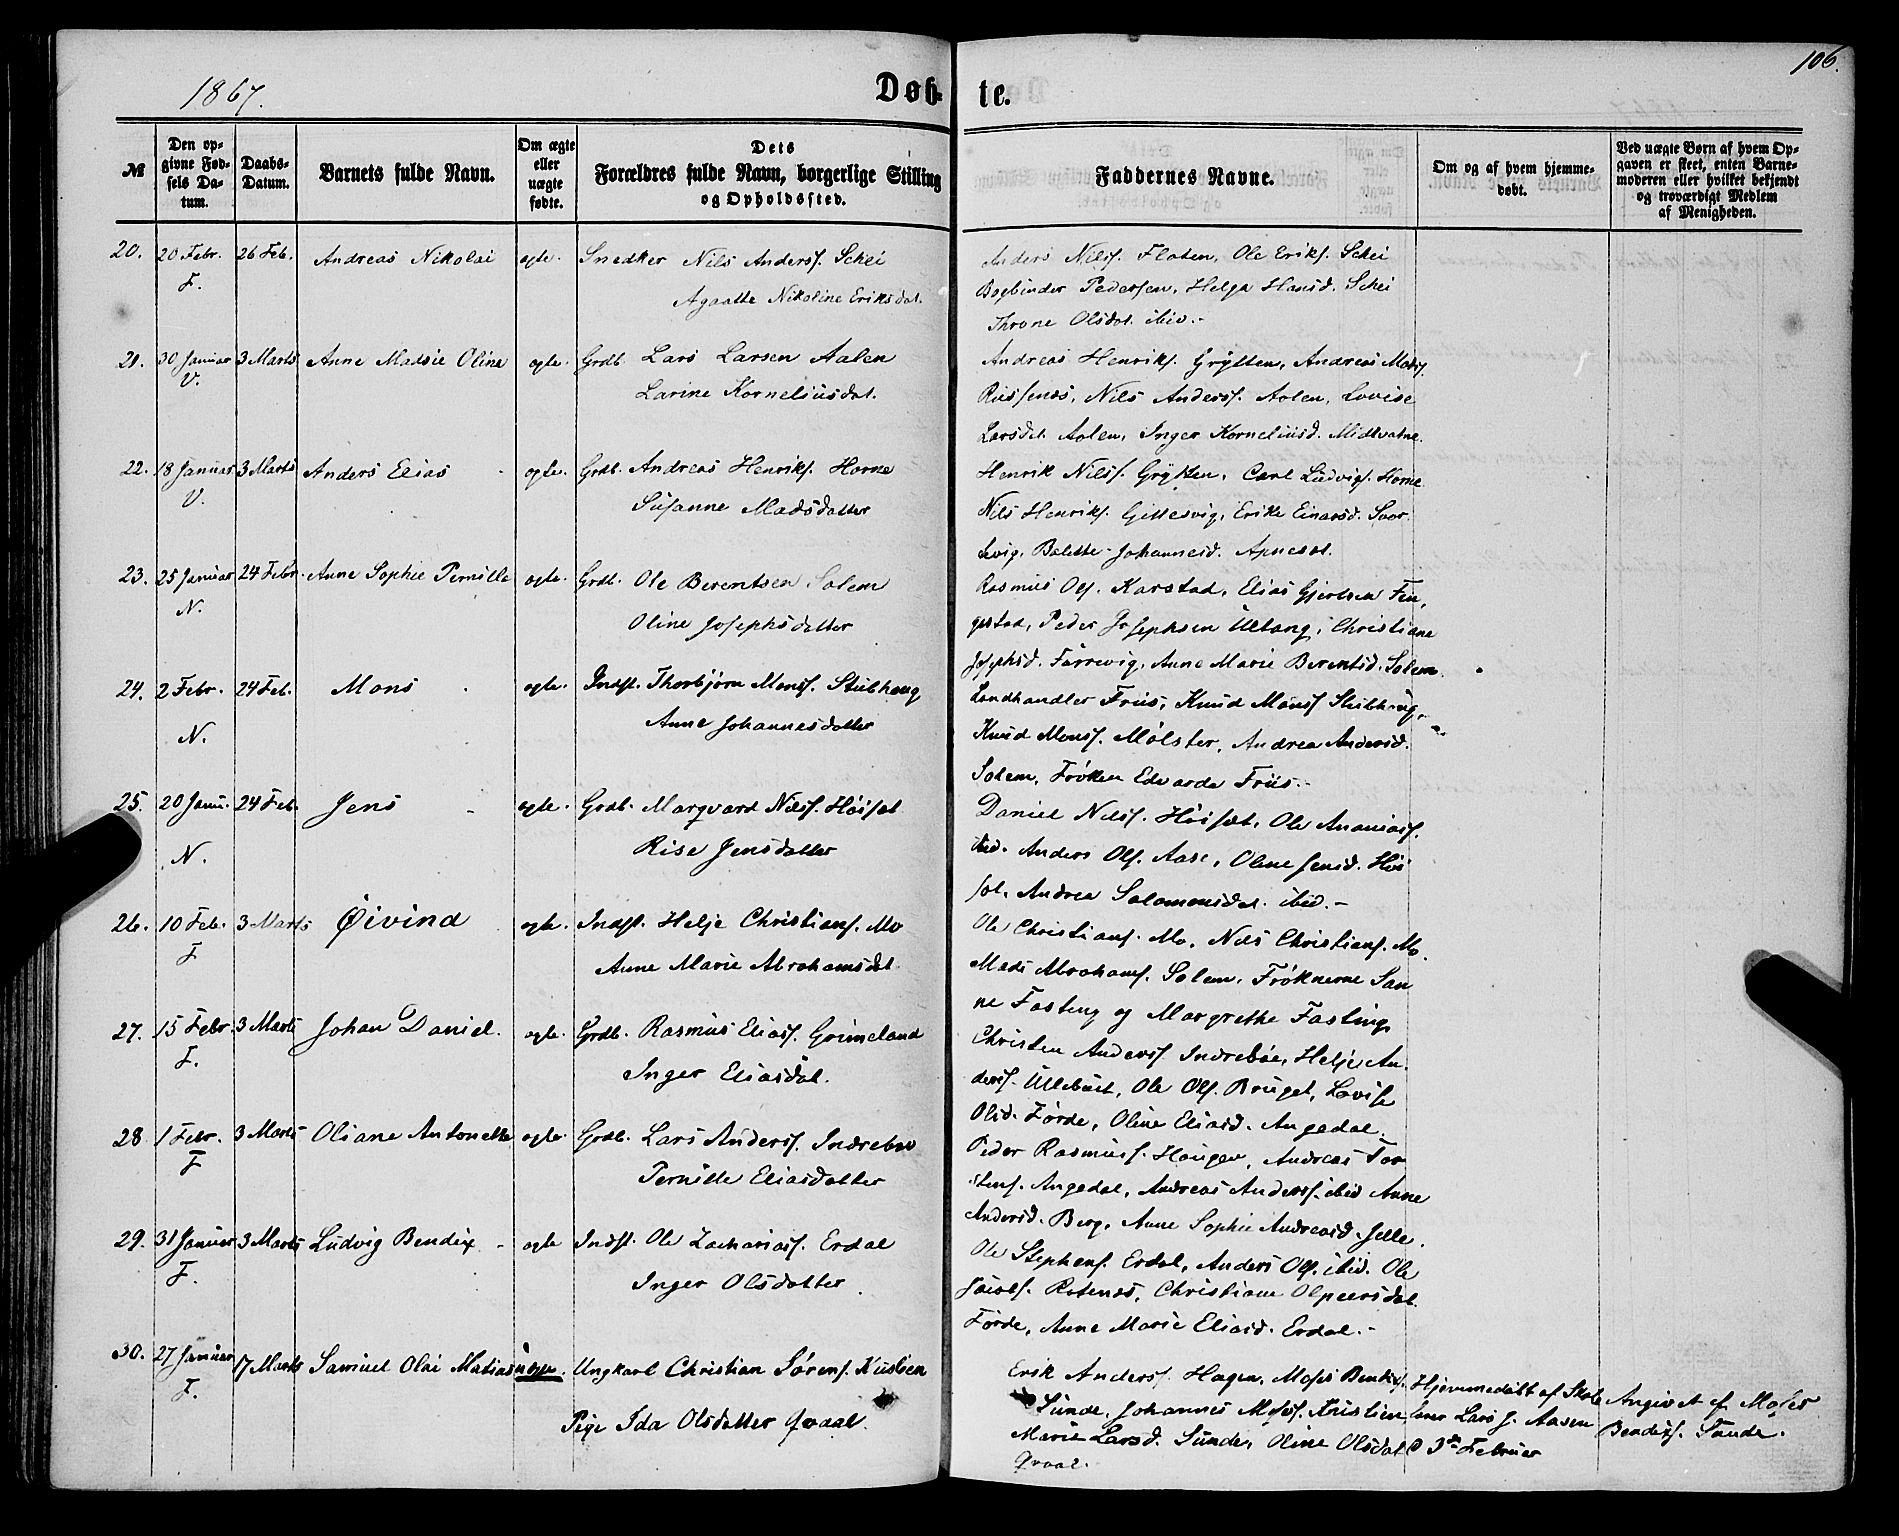 1867.
Døb-
te.
106.
№
Den op-
givne Fød-
sels Da-
tum.
Daabs-
Datum.
Barnets fulde Navn.
Om ægte
eller
uægte
fødte.
Dets
Forældres fulde Navn, borgerlige Stilling
og Opholdssted.
Faddernes Navne.
Om og af hvem hjemme-
døbt.
Ved uægte Børn af hvem Op-
gaven er skeet, enten Barne-
moderen eller hvilket bekjendt
og troværdigt Medlem
af Menigheden.
20. 20 Febr. 26 Feb. Andreas Nikolai ægte. Snedker Nils Anderss. Schei
F. Agaatte Nikoline Eriksdat.
Anders Nilss. Flaten, Ole Eriks. Schei
Bogbinder Pedersen, Helga Hansd. Schei
Throne Olsdat. ibid.-
21. 30 Januar 3 Marts Anne Madsie Oline ægte. Grdb. Lars Larsen Aalen
V. Larine Korneliusdat.
Andreas Henriks. Grytten, Andreas Mads.
Nils Anderss. Aalen, Lovise
Larsdat. Aalen, Inger Korneliusd. Midtvatne.
22. 18 Januar 3 Marts Anders Elias ægte. Grdb. Andreas Henriks. Horne
V. Susanne Madsdatter
Henrik Nilss. Grytten, Carl Ludvigs. Horne
Nils Henriks. Gjittesvig, Erike Einarsd. Svor-
tevig, Balette Johannesd. Apneset.
23. 25 Januar 24 Febr. Anne Sophie Pernille ægte. Grdb. Ole Berentsen Solem
N. Oline Josephsdatter
Rasmus Ols. Karstad, Elias Gjertsen Fin-
gestad, Peder Josephsen Ulltang, Christiane
Josephsd. Farrevig, Anne Marie Berentsd. Solem.
24. 2 Febr. 24 Feb. Mons ægte. Indst. Thorbjørn Monss. Stubhaug
N. Anne Johannesdatter
Landhandler Friis, Knud Monss Stubhaug,
Knud Monss. Mølster, Andrea Andersd.
Solem, Frøken Edvarda Friis.-
25. 20 Janu. 24 Feb. Jens ægte. Grdb. Marqvard Nilss. Høisæt
N. Rise Jensdatter
Daniel Nilss. Høisæt, Ole Ananiass.
ibid. Anders Ols. Aase, Oline Jensd. Høi
sæt. Andrea Salomonsdat. ibid.-
26. 10 Feb. 3 Marts Øivind ægte. Indst. Helje Christians. Mo
F Anne Marie Abrahamsdat.
Ole Christians. Mo, Nils Christians. Mo.
Mads Abrahams. Solem, Frøknerne San
ne Fasting og Margrethe Fasting
27. 15 Febr. 3 Marts Johan Daniel. ægte. Grdb. Rasmus Eliass. Grimeland
F. Inger Eliasdat.
Christen Anderss. Indrebøe, Helje An-
derss. Ullebust, Ole Ols. Bruget, Lovise
Olsd. Førde, Oline Eliasd. Angedal.
28 1 Febr. 3 Marts Oliane Antonette ægte. Grdb. Lars Anderss. Indrebø
F Pernille Eliasdatter
Peder Rasmuss. Hougen, Andreas Tor
stens. Angedal, Andreas Anderss. ibid Anne
Andersd. Berg, Anne Sophie Andreasd. Jelle.
29. 31 Januar 3 Marts Ludvig Bendix - ægte Indst. Ole Zachariass. Erdal
F. Inger Olsdatter
Ole Stephens. Erdal, Anders Ols. ibid. Ole
Jacobs. Rotenæs, Christiane Olpeersdat.
Førde, Anne Marie Eliasd. Erdal.-
30. 27 Januar 17 Marts Samuel Olai Matias uægte. Ungkarl Christian Sørens. Kusleen
F. Pige Ida Olsdatter Qvaal.
Erik Anderss. Hagen, Moses Bendixs.
Sunde, Johannes Moses. Kristlen,
Marie Larsd. Sunde, Oline Olsdat
Qvaal.
Hjemmedøbt af Skole
lærer Lars J. Aasen
d 3de Februar
Angivet af Moses
Bendixs. Sunde.